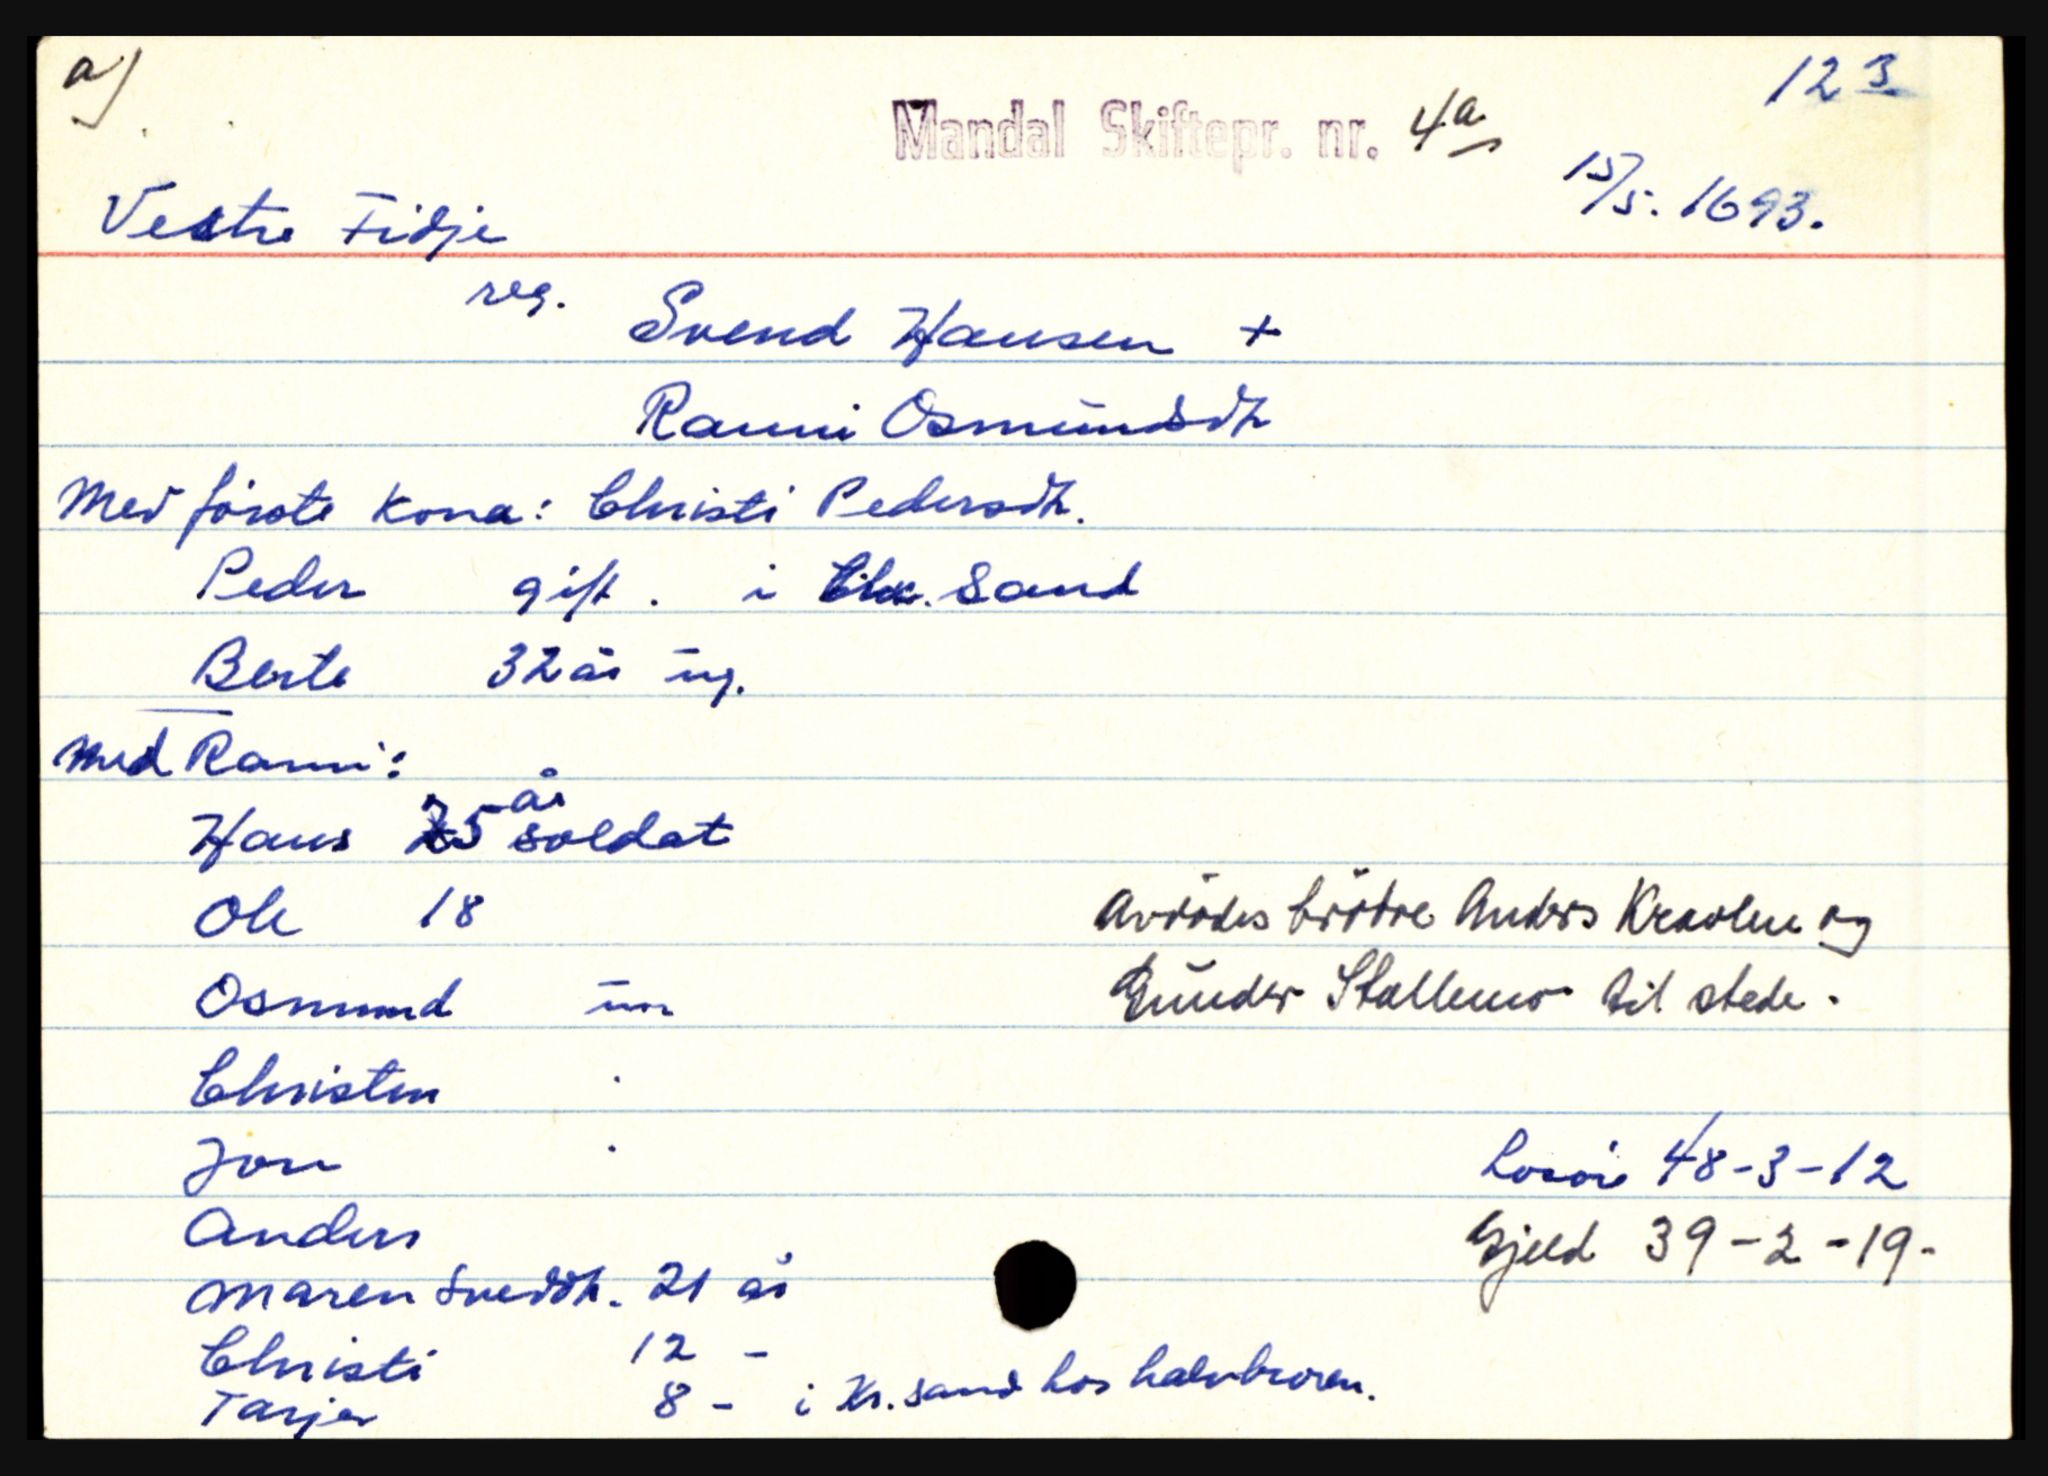 a)
123
Mandal Skiftepr. nr. 4a
15/5. 1693.
Vestre Fidje
reg. Svend Hansen +
Ranni Osmundsdtr
Med förste kona: Christi Pedersdtr.
Peder gift. i Chr. Sand
Berte 32 år ug.
Med Ranni:
Hans 25 år soldat
Ole 18
Avdödes brödre Anders Kraolen og
Osmund um
Gunder Stallemo til stede.
Christen
Jon
Losöre 48-3-12
Anders
Gjeld 39-2-19-
Maren Svensdtr. 21 år
Christi 12 -
Tarjer 8 - i Kr. sand hos halvbroren.